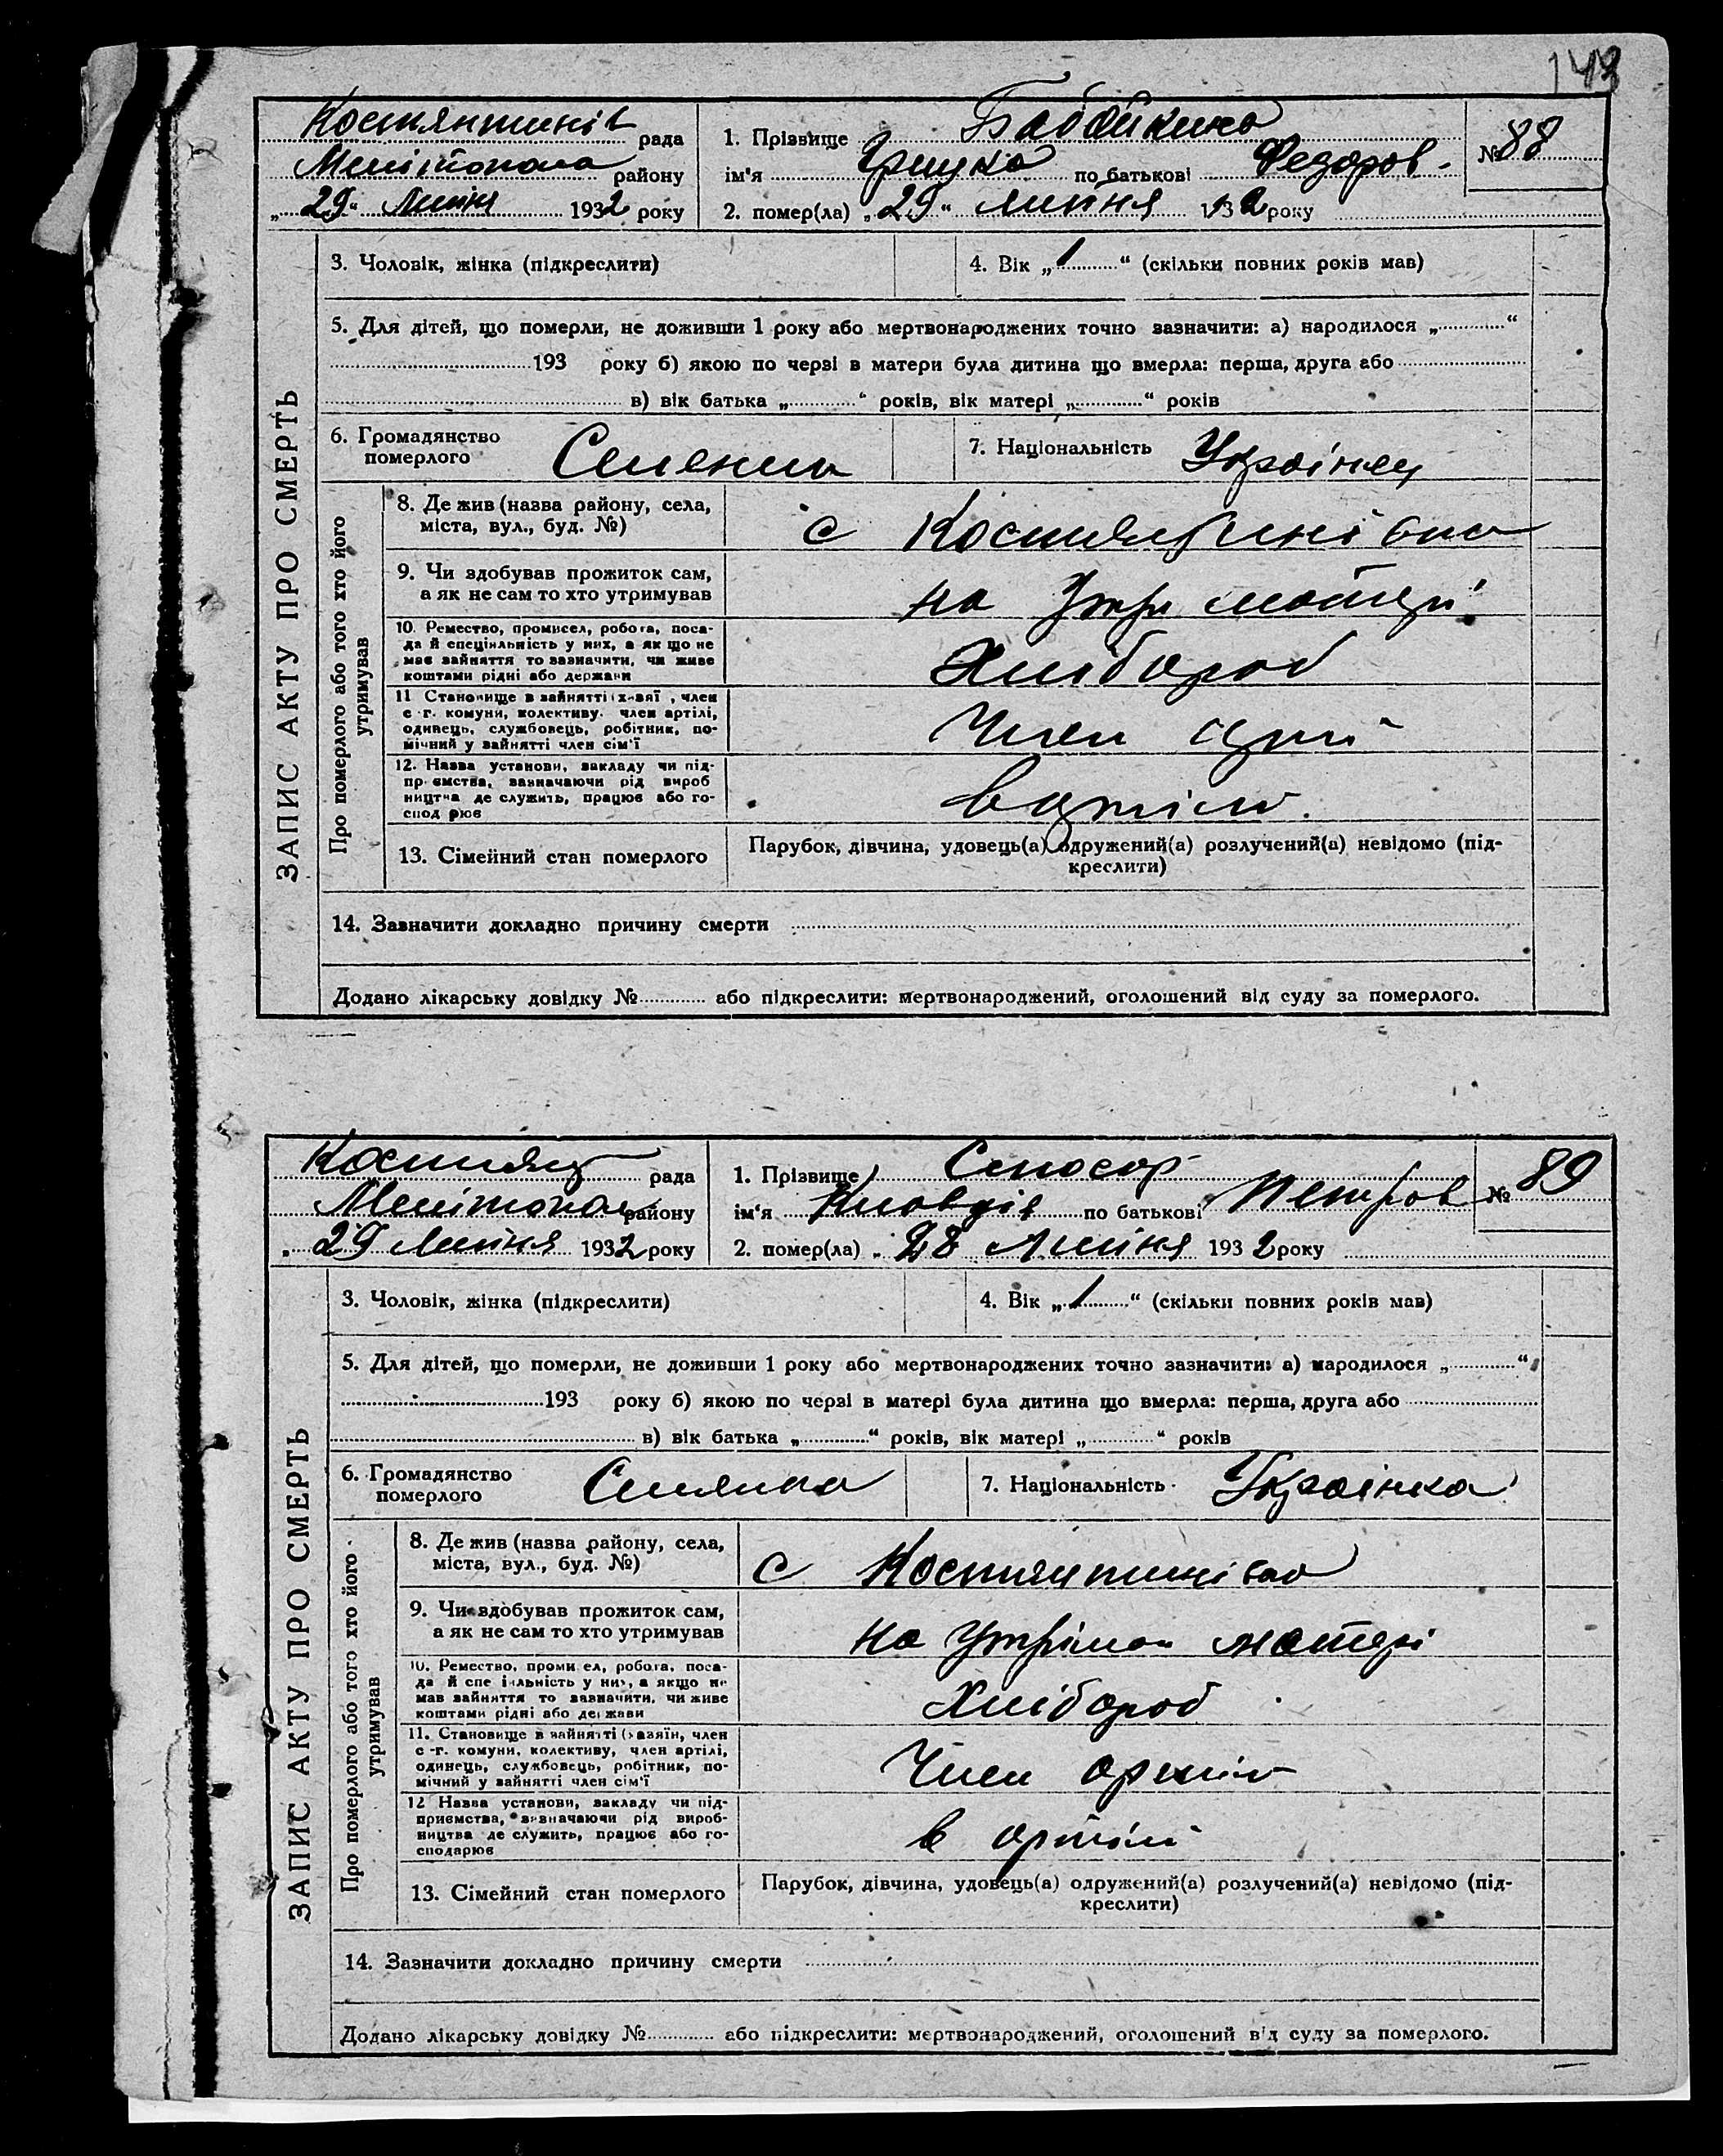 143
Костянтинів рада
Мелітопола району
„29“ Липня 1932 року
1. Прізвище Бабайкина
ім'я Грицко по батькові Федоров-
№ 88
2. помер(ла) „29“ липня 1932 року
ЗАПИС АКТУ ПРО СМЕРТЬ
3. Чоловік, жінка (підкреслити)
4. Вік „1“ (скільки повних років мав)
5. Для дітей, що померли, не доживши 1 року або мертвонароджених точно зазначити: а) народилося „ “
193 року б) якою по черзі в матери була дитина що вмерла: перша, друга або
в) вік батька „ “ років, вік матері „ “ років
6. Громадянство
померлого
7. Національність Українец
Про померлого або того хто його
утримував
8. Де жив (назва району, села,
міста, вул., буд. №)
с Костянтинівка
9. Чи здобував прожиток сам,
а як не сам то хто утримував
на утр матері
10. Ремество, промисел, робота, поса-
да й спеціяльність у них, а як що не
має зайняття то зазначити, чи живе
коштами рідні або держави
Хлібороб
11 Становище в зайнятті (х-зяї , член
с-г. комуни, колективу. член артілі,
одинець, службовець, робітник, по-
мічний у зайнятті член сім'ї
Член
12. Назва установи, закладу чи під-
пр ємства, зазначаючи рід вироб
ництва де служить, працює або го-
спод рює
в артіли.
13. Сімейний стан померлого
Парубок, дівчина, удовець(а) одружений(а) розлучений(а) невідомо (під-
креслити)
14. Зазначити докладно причину смерти
Додано лікарську довідку № або підкреслити: мертвонароджений, оголошений від суду за померлого.
рада
Мелітопол району
„29 Липня 1932 року
1. Прізвище
ім'я Клавдія по батькові Петров
№ 89
2. помер(ла) „28 Липня 1932 року
ЗАПИС АКТУ ПРО СМЕРТЬ
3. Чоловік, жінка (підкреслити)
4. Вік „1“ (скільки повних років мав)
5. Для дітей, що померли, не доживши 1 року або мертвонароджених точно зазначити: а) народилося „ “
193 року б) якою по черзі в матері була дитина що вмерла: перша, друга або
в) вік батька „ “ років, вік матері „ “ років
6. Громадянство
померлого
Силянка
7. Національність Українка
Про померлого або того хто його
утримував
8. Де жив (назва району, села,
міста, вул., буд. №)
с Костянтинівка
9. Чи здобував прожиток сам,
а як не сам то хто утримував
на утріман матері
10. Ремество, проми ел, робота, поса-
да й спе іяльність у них, а якщо не
мав зайняття то зазначити, чи живе
коштами рідні або держави
Хлібороб
11. Становище в зайнятті (хазяїн, член
с-г. комуни, колективу, член артілі,
одинець, службовець, робітник, по-
мічний у зайнятті член сім'ї
Член артіли
12 Назва установи, закладу чи під-
приємства, зазначаючи рід вироб-
ництва де служить, працює або го-
сподарює
в артілі
13. Сімейний стан померлого
Парубок, дівчина, удовець(а) одружений(а) розлучений(а) невідомо (під-
креслити)
14. Зазначити докладно причину смерти
Додано лікарську довідку № або підкреслити: мертвонароджений, оголошений від суду за померлого.